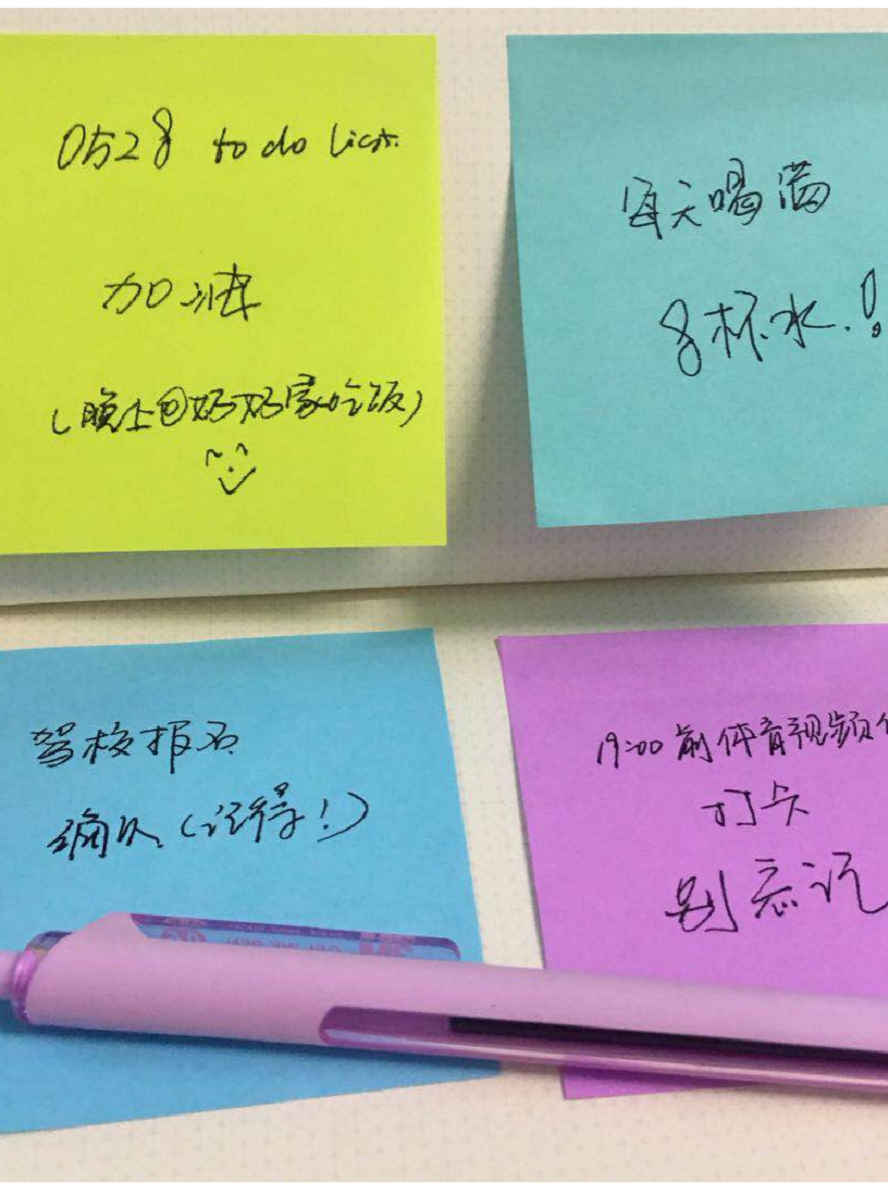 0528 to do list.
加油
(晚上回好好家吃饭)
每天喝满
8杯水.!
驾校报名
确认(记得!)
19:00前体育视频
打卡
别忘记